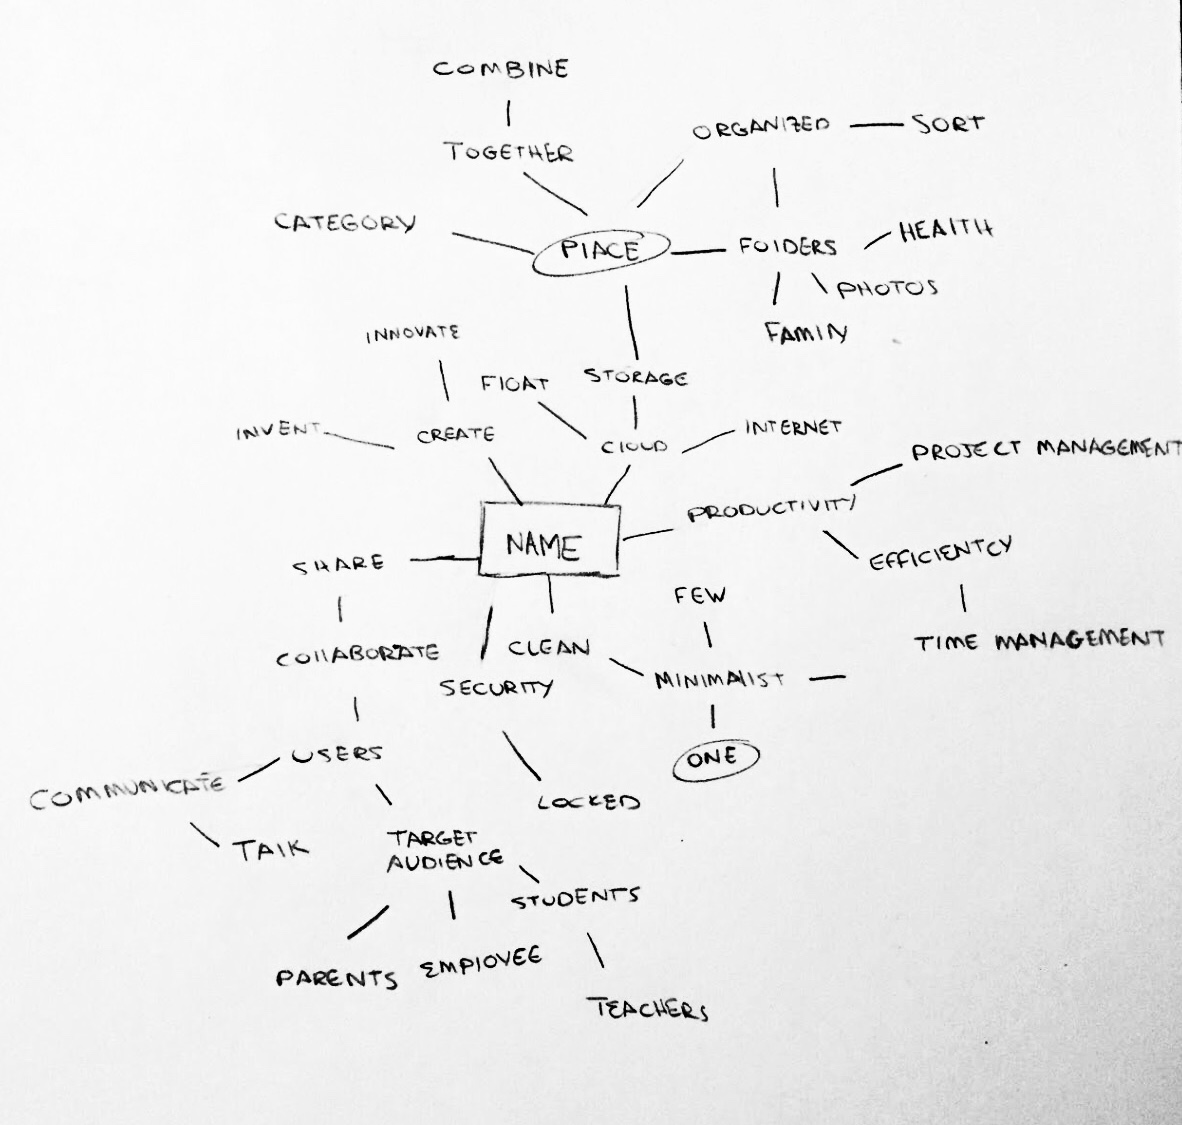 COMBINE
TOGETHER
ORGANIZED
SORT
CATEGORY
PlACE
FOlDERS
HEAlTH
PHOTOS
FAMIlY
INNOVATE
FlOAT
STORAGE
INVENT
CREATE
ClOUD
INTERNET
PROJECT MANAGEMENT
PRODUCTIVITY
NAME
EFFICIENTCY
SHARE
FEW
TIME MANAGEMENT
COllABORATE
CLEAN
SECURITY
MINIMAlIST
USERS
ONE
COMMUNICATE
LOCKED
TAlK
TARGET
AUDIENCE
STUDENTS
PARENTS
EMPlOYEE
TEACHERS